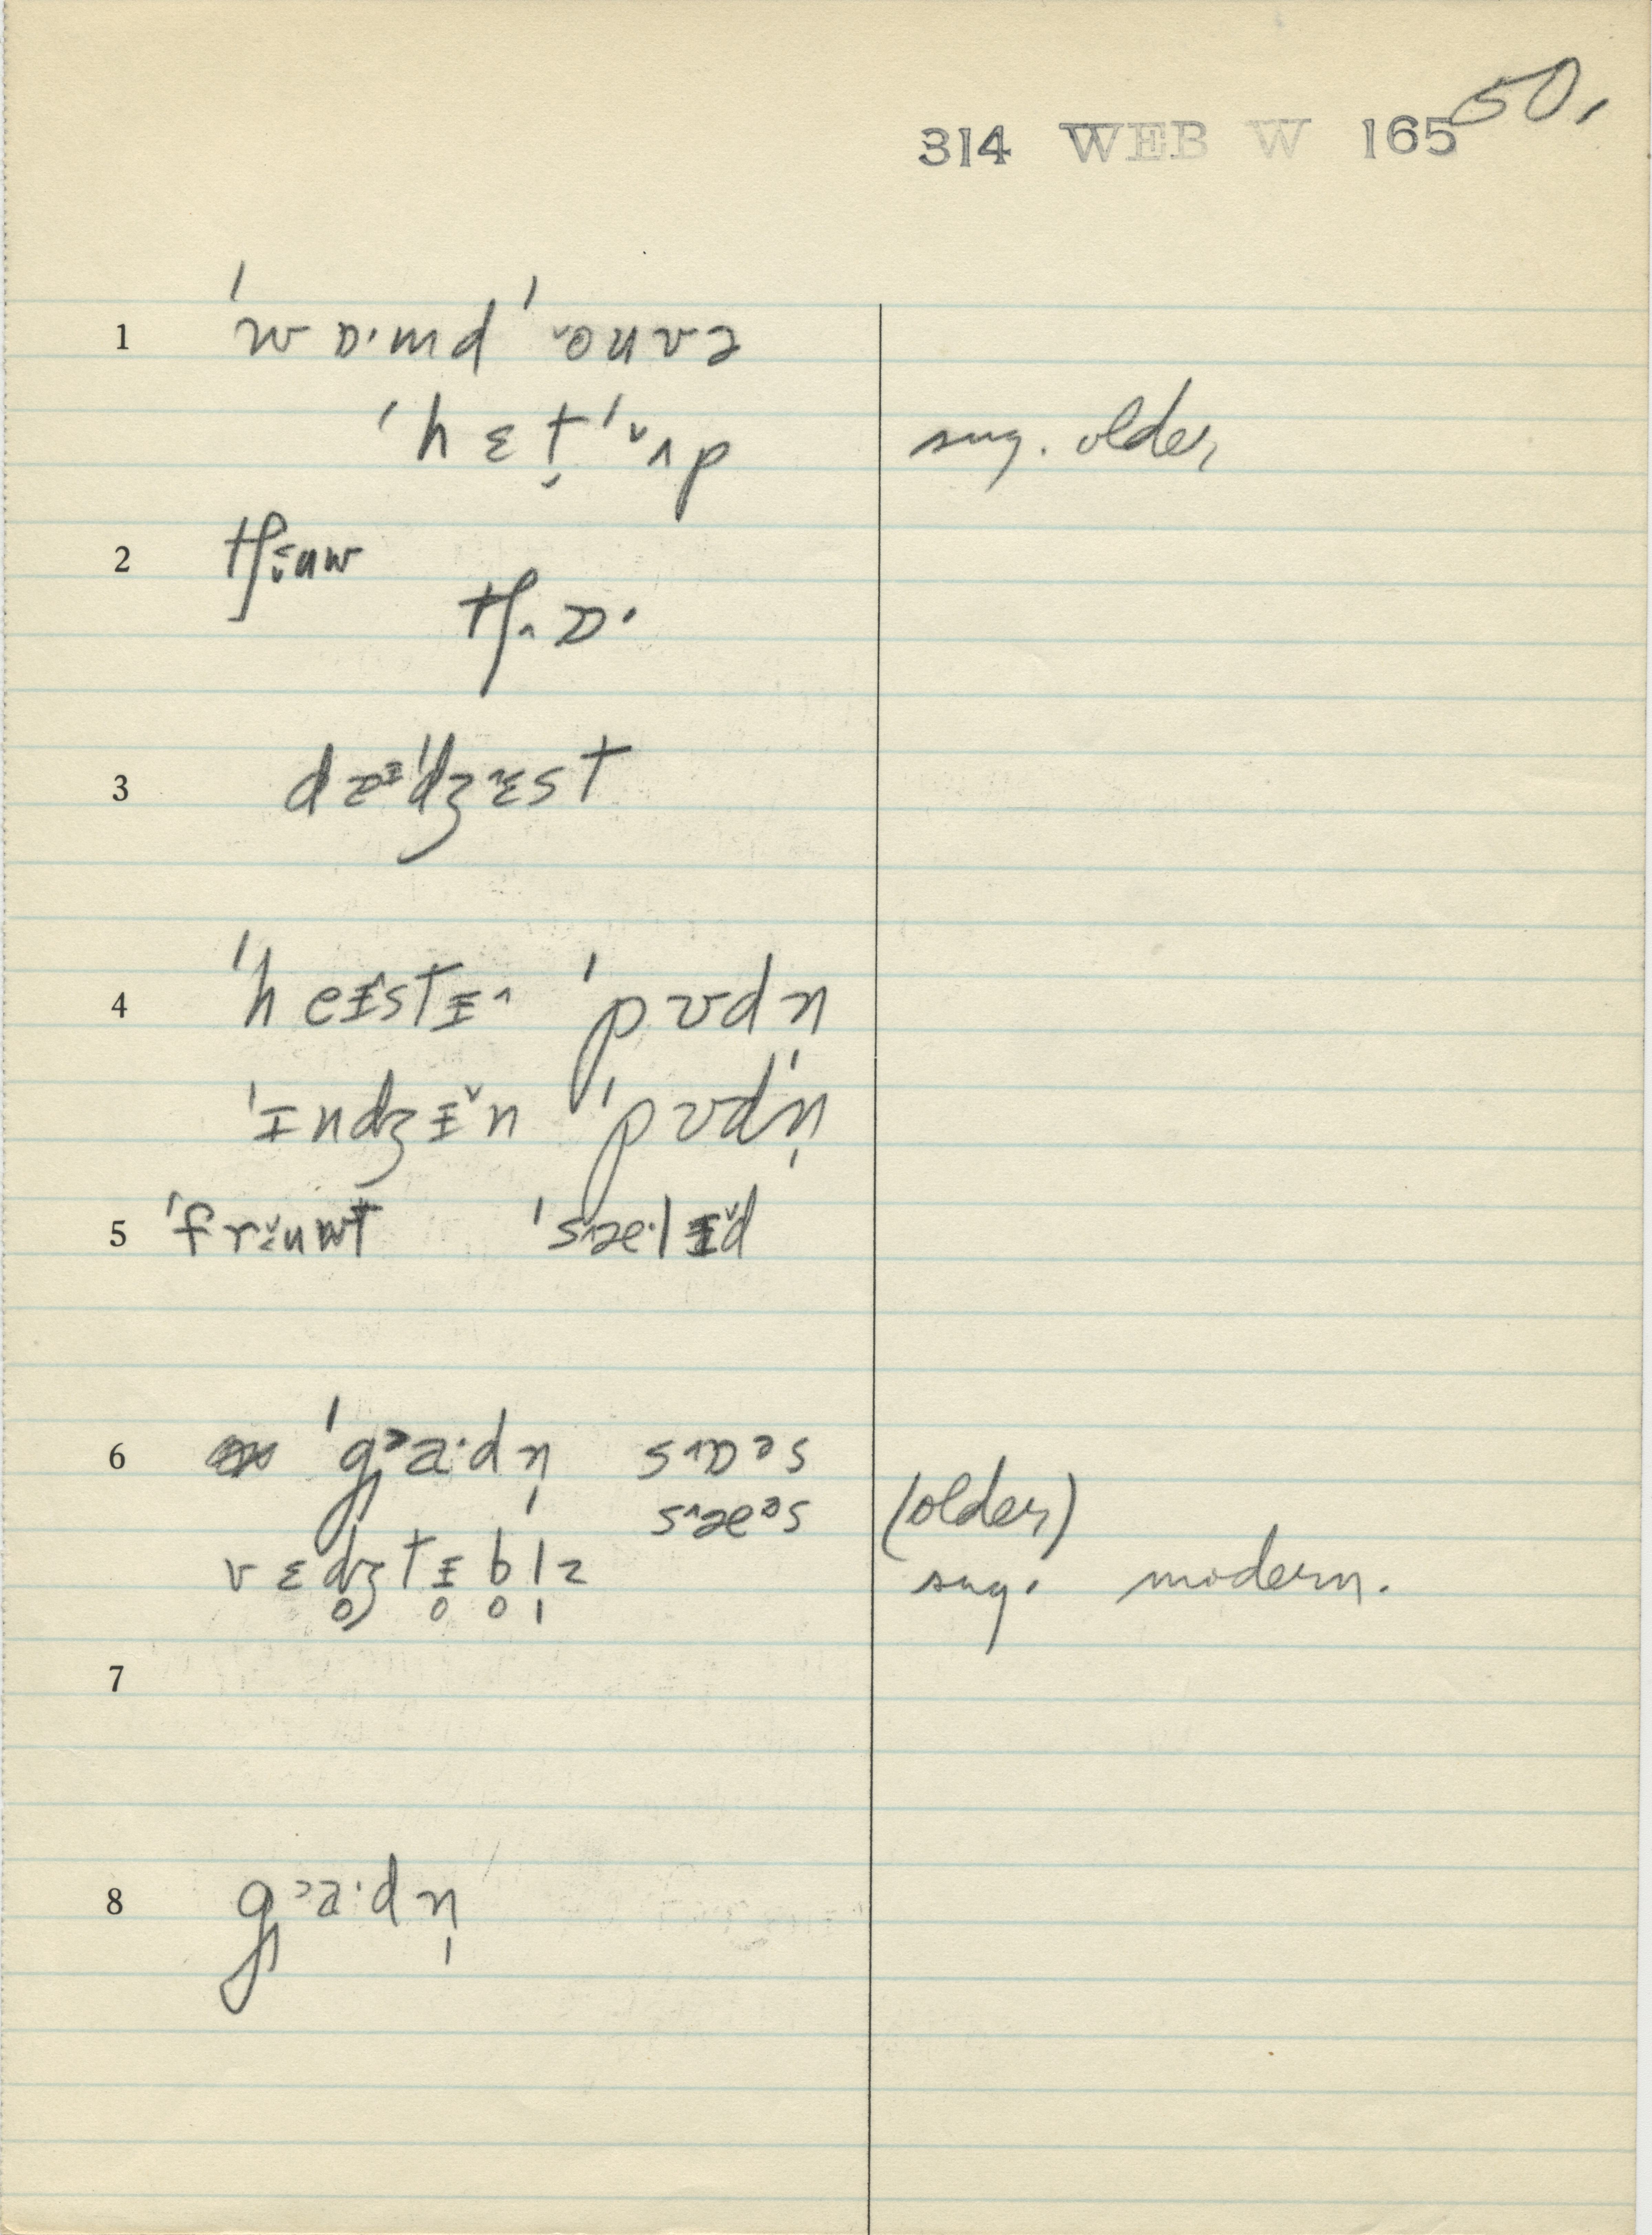 50.
314 WEB W 165
1 ˈwɒ·md ˈ˅ouvə
ˈhɛt̬ ˈ˅ʌp sug. older,
2 tʃɨ̬uw
tʃ˄ɒ·
3 dɐᵻˈdʒ˄ɛst
4 ˈheᵻ˄stᵻ˄ ˈpʊdn
ˈᵻndʒᵻ˅n ˈpʊdˈn̩
5 ˈfrɨ˅uwt ˈs˄æ·lᵻ˅d
6 ˈgᵊa·dn̩ s˄ɒᵊs
s˄æᵊs (older)
vɛdʒtᵻblz sug. modern.
7
8 gᵊa·dn̩